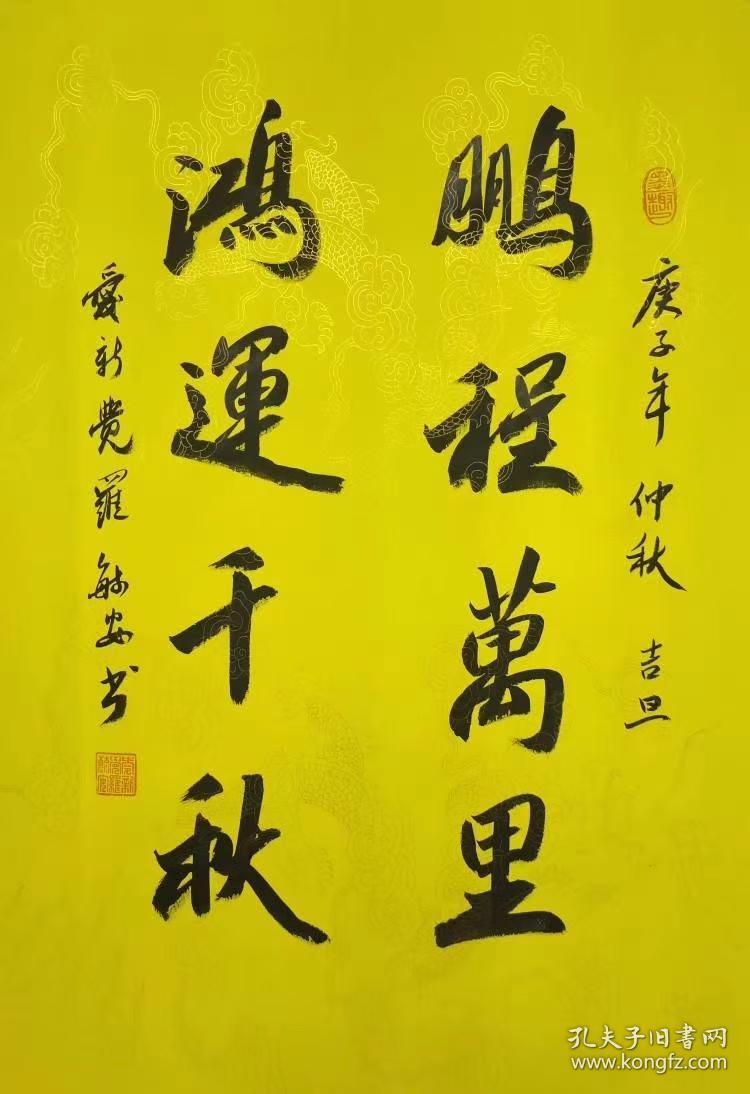 庚子年 仲秋 吉旦
鵬程萬里
鴻運千秋
愛新覺羅 毓安书
孔夫子旧書网
www.kongfz.com